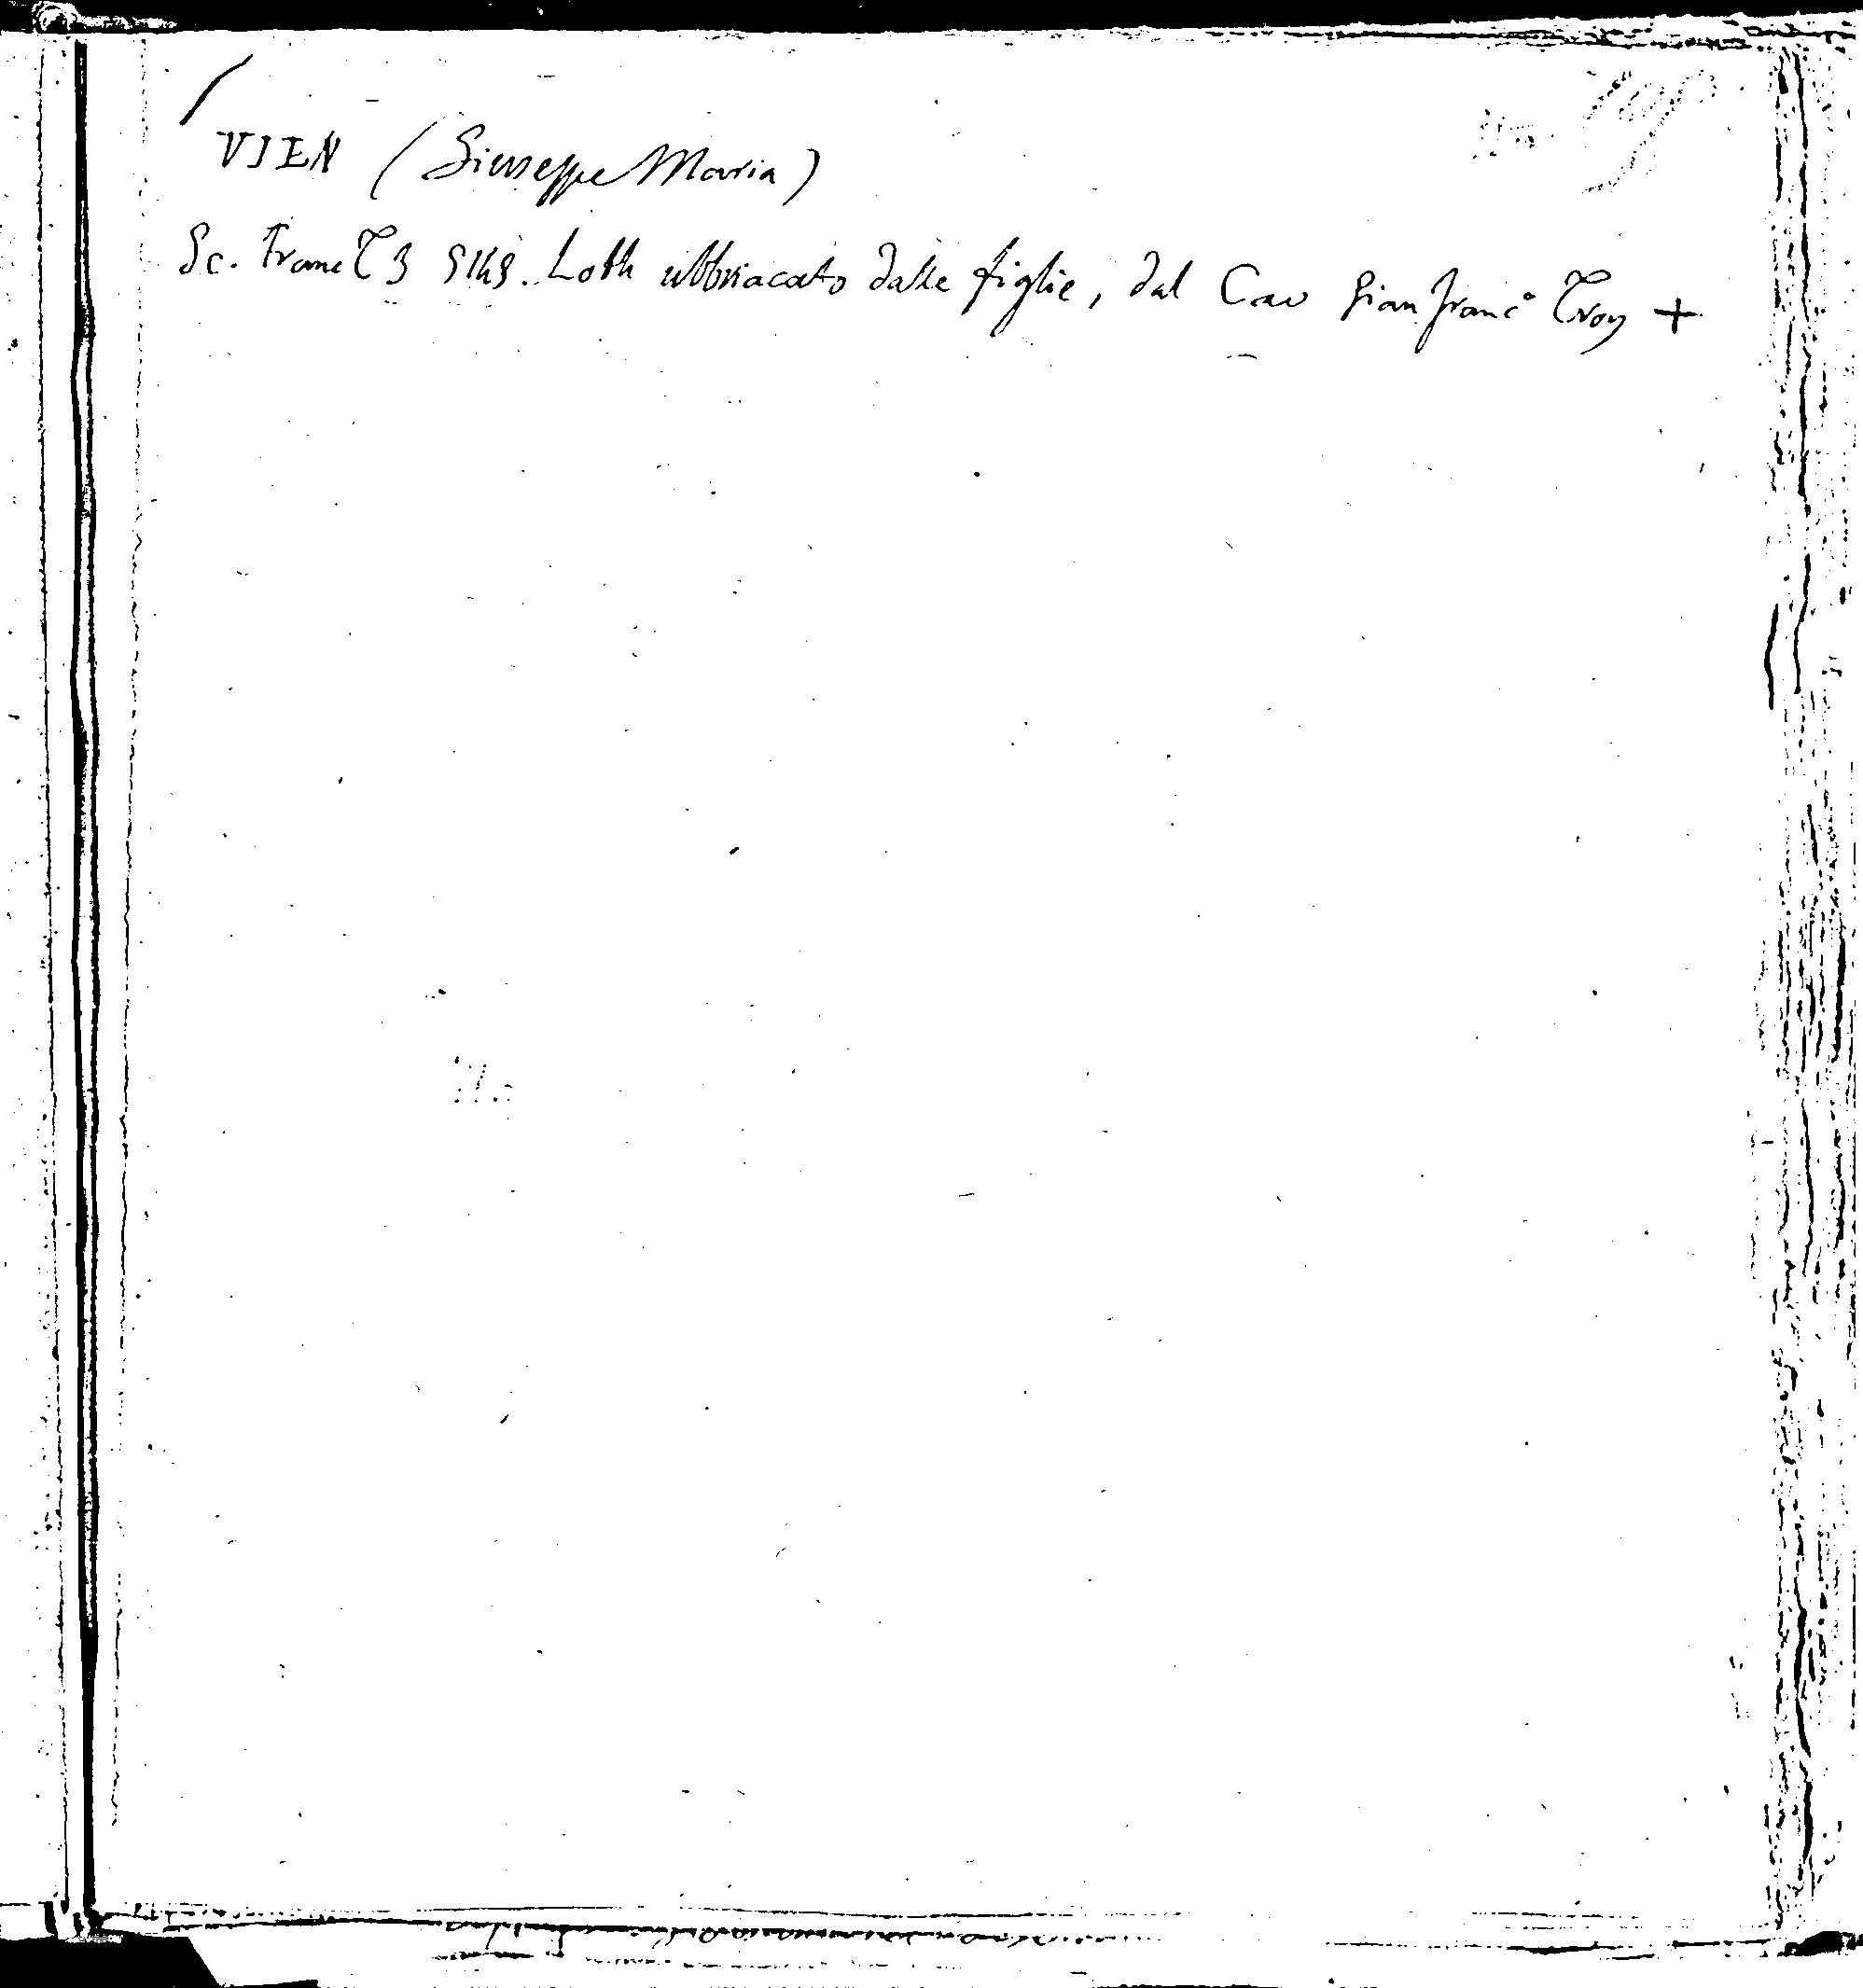 VIEN (Giuseppe Maria)
Sc. Franc T 3 5149. Loth ubbriacato dalle figlie, dal Cav Gian Franc° Troy +